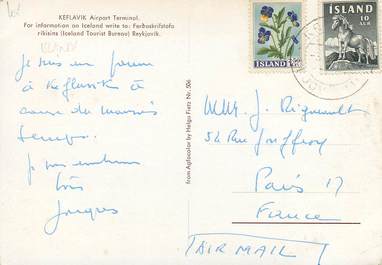 KEFLAVIK Airport Terminal.
For information on Iceland write to: Ferðaskrifstofa
ríkisins (Iceland Tourist Bureau) Reykjavik.
Je suis en panne
à Keflavik à
cause du mauvais
temps.
Je vous embrasse
tous
Jacques
from Agfacolor by Helga Fietz Nr. 506
ÍSLAND
ÍSLAND
10
AUR
M. J. Rigneault
52 Rue Jouffroy
Paris 17
France
AIR MAIL